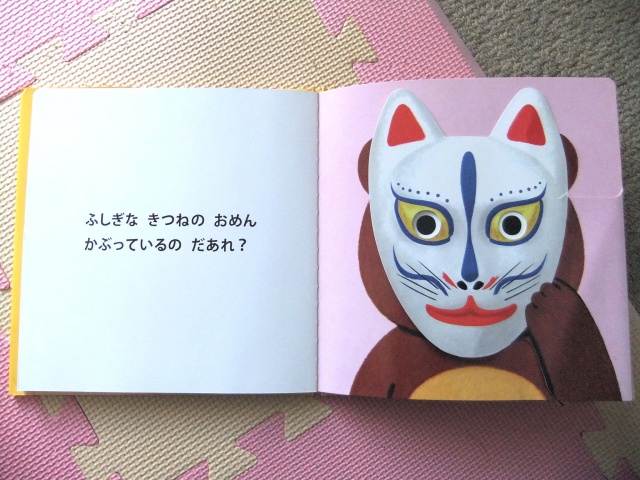 ふしぎな きつねの おめん
かぶっているの だあれ？